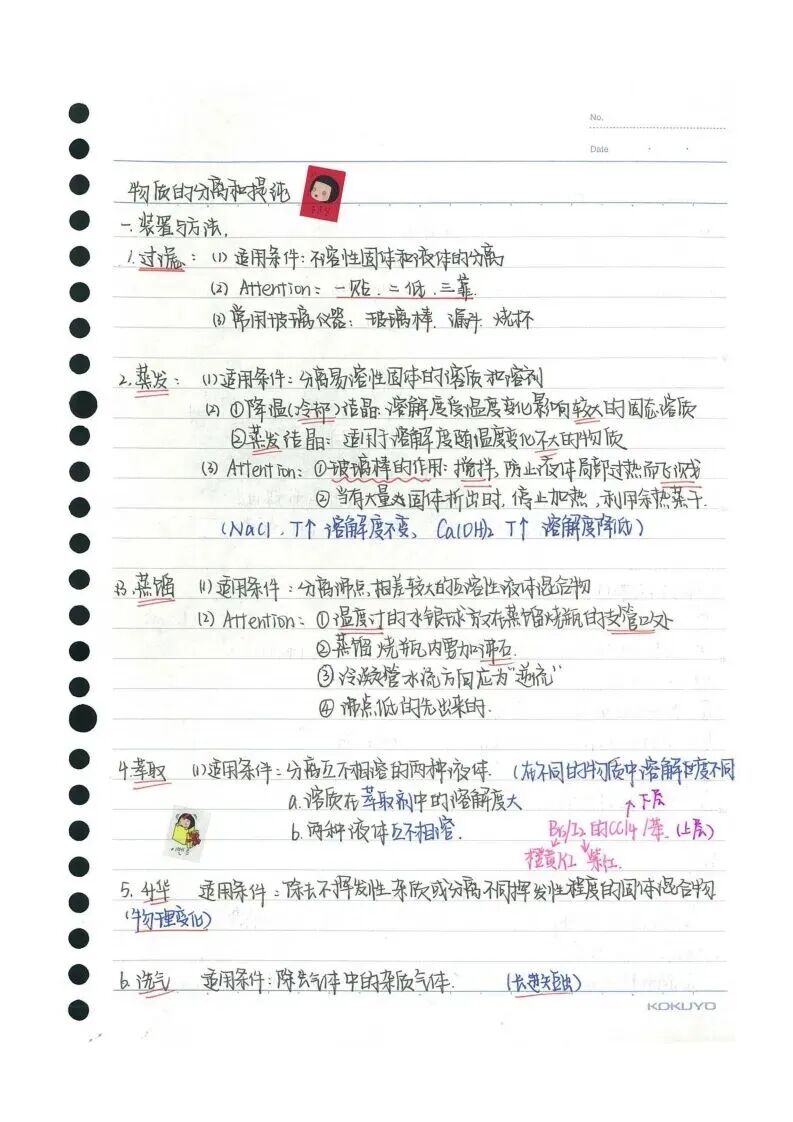 No.
Date
物质的分离和提纯
一.装置与方法.
1.过滤: (1) 适用条件: 不溶性固体和液体的分离
(2) Attention: 一贴.二低.三靠.
(3) 常用玻璃仪器: 玻璃棒. 漏斗. 烧杯
2.蒸发: (1)适用条件: 分离易溶性固体的溶质和溶剂
(2) ①降温(冷却)结晶: 溶解度受温度变化影响较大的固态溶质
②蒸发结晶: 适用于溶解度随温度变化不大的物质
(3) Attention: ①玻璃棒的作用: 搅拌, 防止液体局部过热而飞溅
② 当有大量固体析出时, 停止加热, 利用余热蒸干.
(NaCl, T↑ 溶解度不变, Ca(OH)2 T↑ 溶解度降低)
3.蒸馏 (1)适用条件: 分离沸点相差较大的互溶性液体混合物
(2) Attention: ①温度计的水银球放在蒸馏烧瓶的支管口处
②蒸馏烧瓶内要加沸石.
③冷凝管水流方向应为"逆流"
④ 沸点低的先出来的.
4.萃取 (1)适用条件: 分离互不相溶的两种液体. (在不同的物质中溶解度不同
a.溶质在萃取剂中的溶解度大 ↑下层
b.两种液体互不相溶. Br2/I2 的CCl4/苯. (上层)
橙黄/红 紫红.
5.升华 适用条件: 除去不挥发性杂质或分离不同挥发性程度的固体混合物
(物理变化)
6.洗气 适用条件: 除去气体中的杂质气体. (长进短出)
KOKUYO